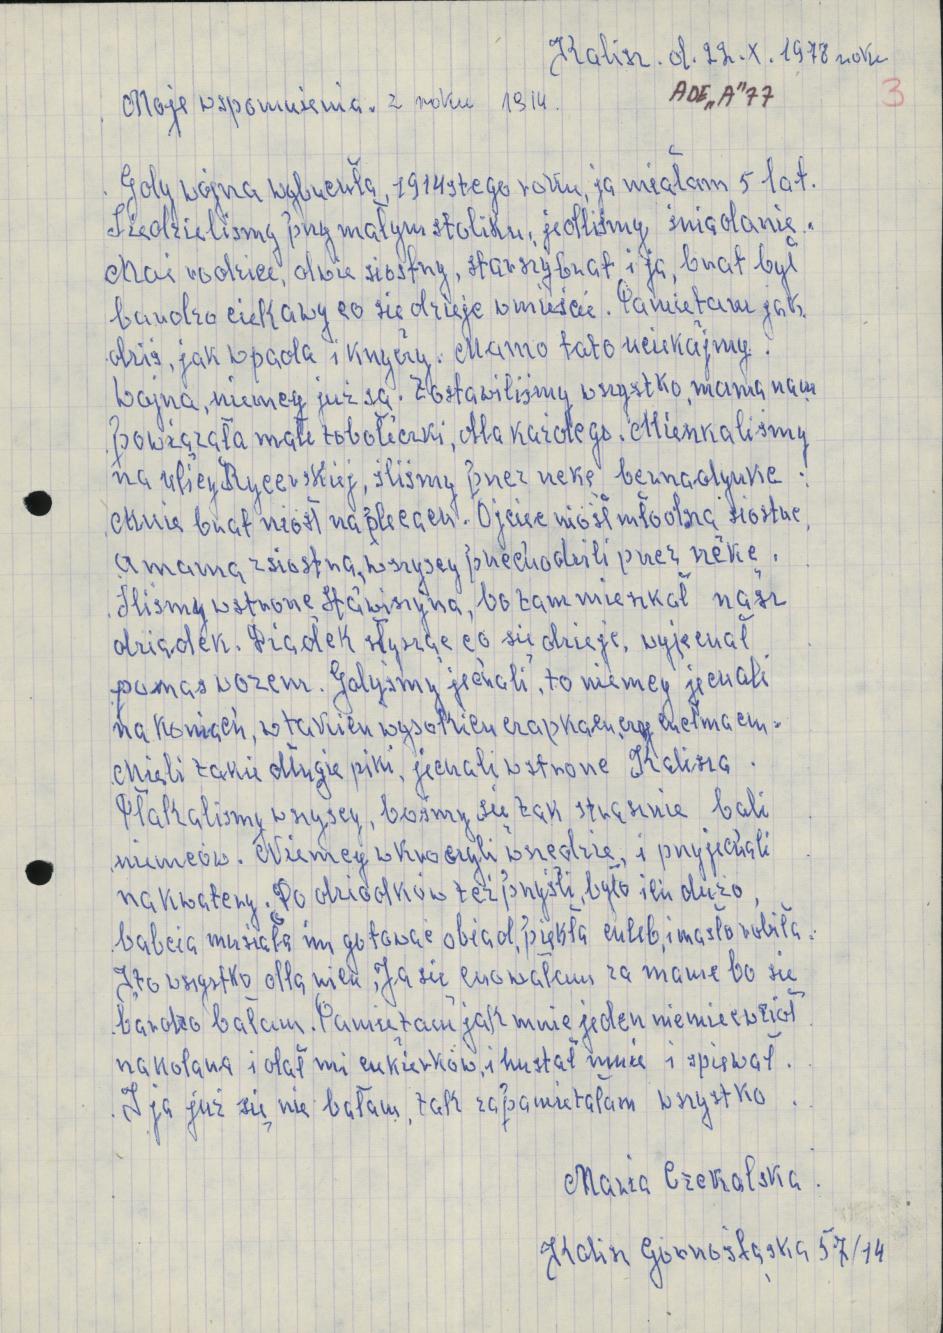 Kalisz. d. 22. X. 1978 roku
Moje wspomnienia. z roku 1914.
ADE „A” 77
3
Gdy wojna wybuchła, 1914stego roku, ja miałam 5 lat.
Siedzieliśmy przy małym stoliku, jedliśmy śniadanie.
Moi rodzice, dwie siostry, starszy brat i ja, brat był
bardzo ciekawy co się dzieje w mieście. Pamietam jak
dziś, jak wpada i krzyczy. Mamo tato uciekajmy.
Wojna, niemcy już są. Zostawiliśmy wszystko, mama nam
powiązała małe tobołeczki, dla każdego. Mieszkaliśmy
na ulicy Rycerskiej, śliśmy przez rzekę bernadynke.
Mnie brat niósł na plecach. Ojciec niósł młodszą siostre,
a mama z siostrą, wszyscy przechodzili przez rzekę.
Śliśmy w strone Stawiszyna, bo tam mieszkał nasz
dziadek. Dziadek słysząc co się dzieje, wyjechał
po nas wozem. Gdyśmy jechali, to niemcy jechali
na koniach, w takich wysokich czapkach, czy chełmach.
Mieli takie długie piki, jechali w strone Kalisza.
Płakaliśmy wszyscy, bośmy się tak strasznie bali
niemców. Niemcy wkroczyli wszędzie, i przyjechali
na kwatery. Do dziadków też przyśli, było ich dużo,
babcia musiała im gotować obiad, piekła chleb, i masło robiła.
I to wszystko dla nich, Ja sie chowałam za mame bo sie
bardzo bałam. Pamietam jak mnie jeden niemiec wziół
na kolana i dał mi cukierków, i hustał mnie i spiewał.
I ja już się nie bałam, tak zapamietałam wszystko.
Maria Czekalska.
Kalisz Górnośląska 57/14